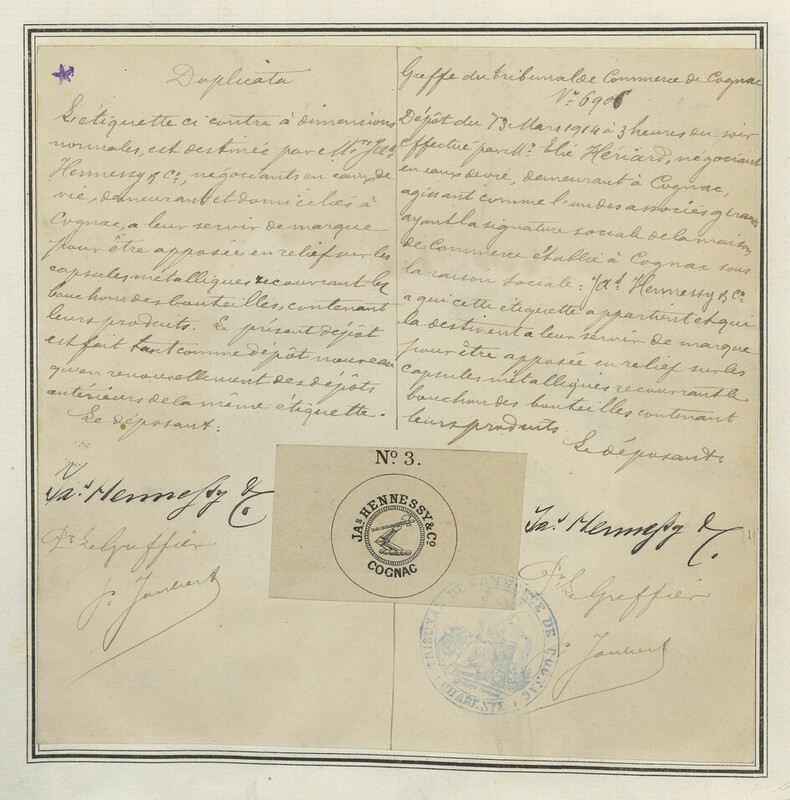 Duplicata
L'étiquette ci contre à dimensions
normales, est destinée par MM.rs Jas
Hennessy & Co, négociants en eaux de
vie, demeurant et domiciliés à
Cognac, a leur servir de marque
pour être apposée en relief sur les
capsules métalliques recouvrant les
bouchons des bouteilles, contenant
leurs produits. Le présent dépôt
est fait tant comme dépôt nouveau
qu'en renouvellement des dépôts
antérieurs de la même étiquette.
Le déposant:
Jas Hennessy & Co.
Pr Le Greffier
Joubert
Greffe du tribunal de Commerce de Cognac
No 6906
Dépôt du 13 Mars 1914 à 3 heures du soir
effectué par Mr. Elie Hériard, négociant
en eaux de vie, demeurant à Cognac,
agissant comme l'un des associés gérants
ayant la signature sociale de la maison
de Commerce établie à Cognac sous
la raison sociale: Jas Hennessy & Co
a qui cette étiquette appartient et qui
la destinent a leur servir de marque
pour être apposée en relief sur les
capsules métalliques recouvrant le
bouchon des bouteilles contenant
leurs produits
Le déposant:
Jas Hennessy & Co.
Pr Le Greffier
Joubert
No 3.
JAs HENNESSY & Co
COGNAC
TRIBUNAL DE COMMERCE DE COGNAC
(CHARENTE)